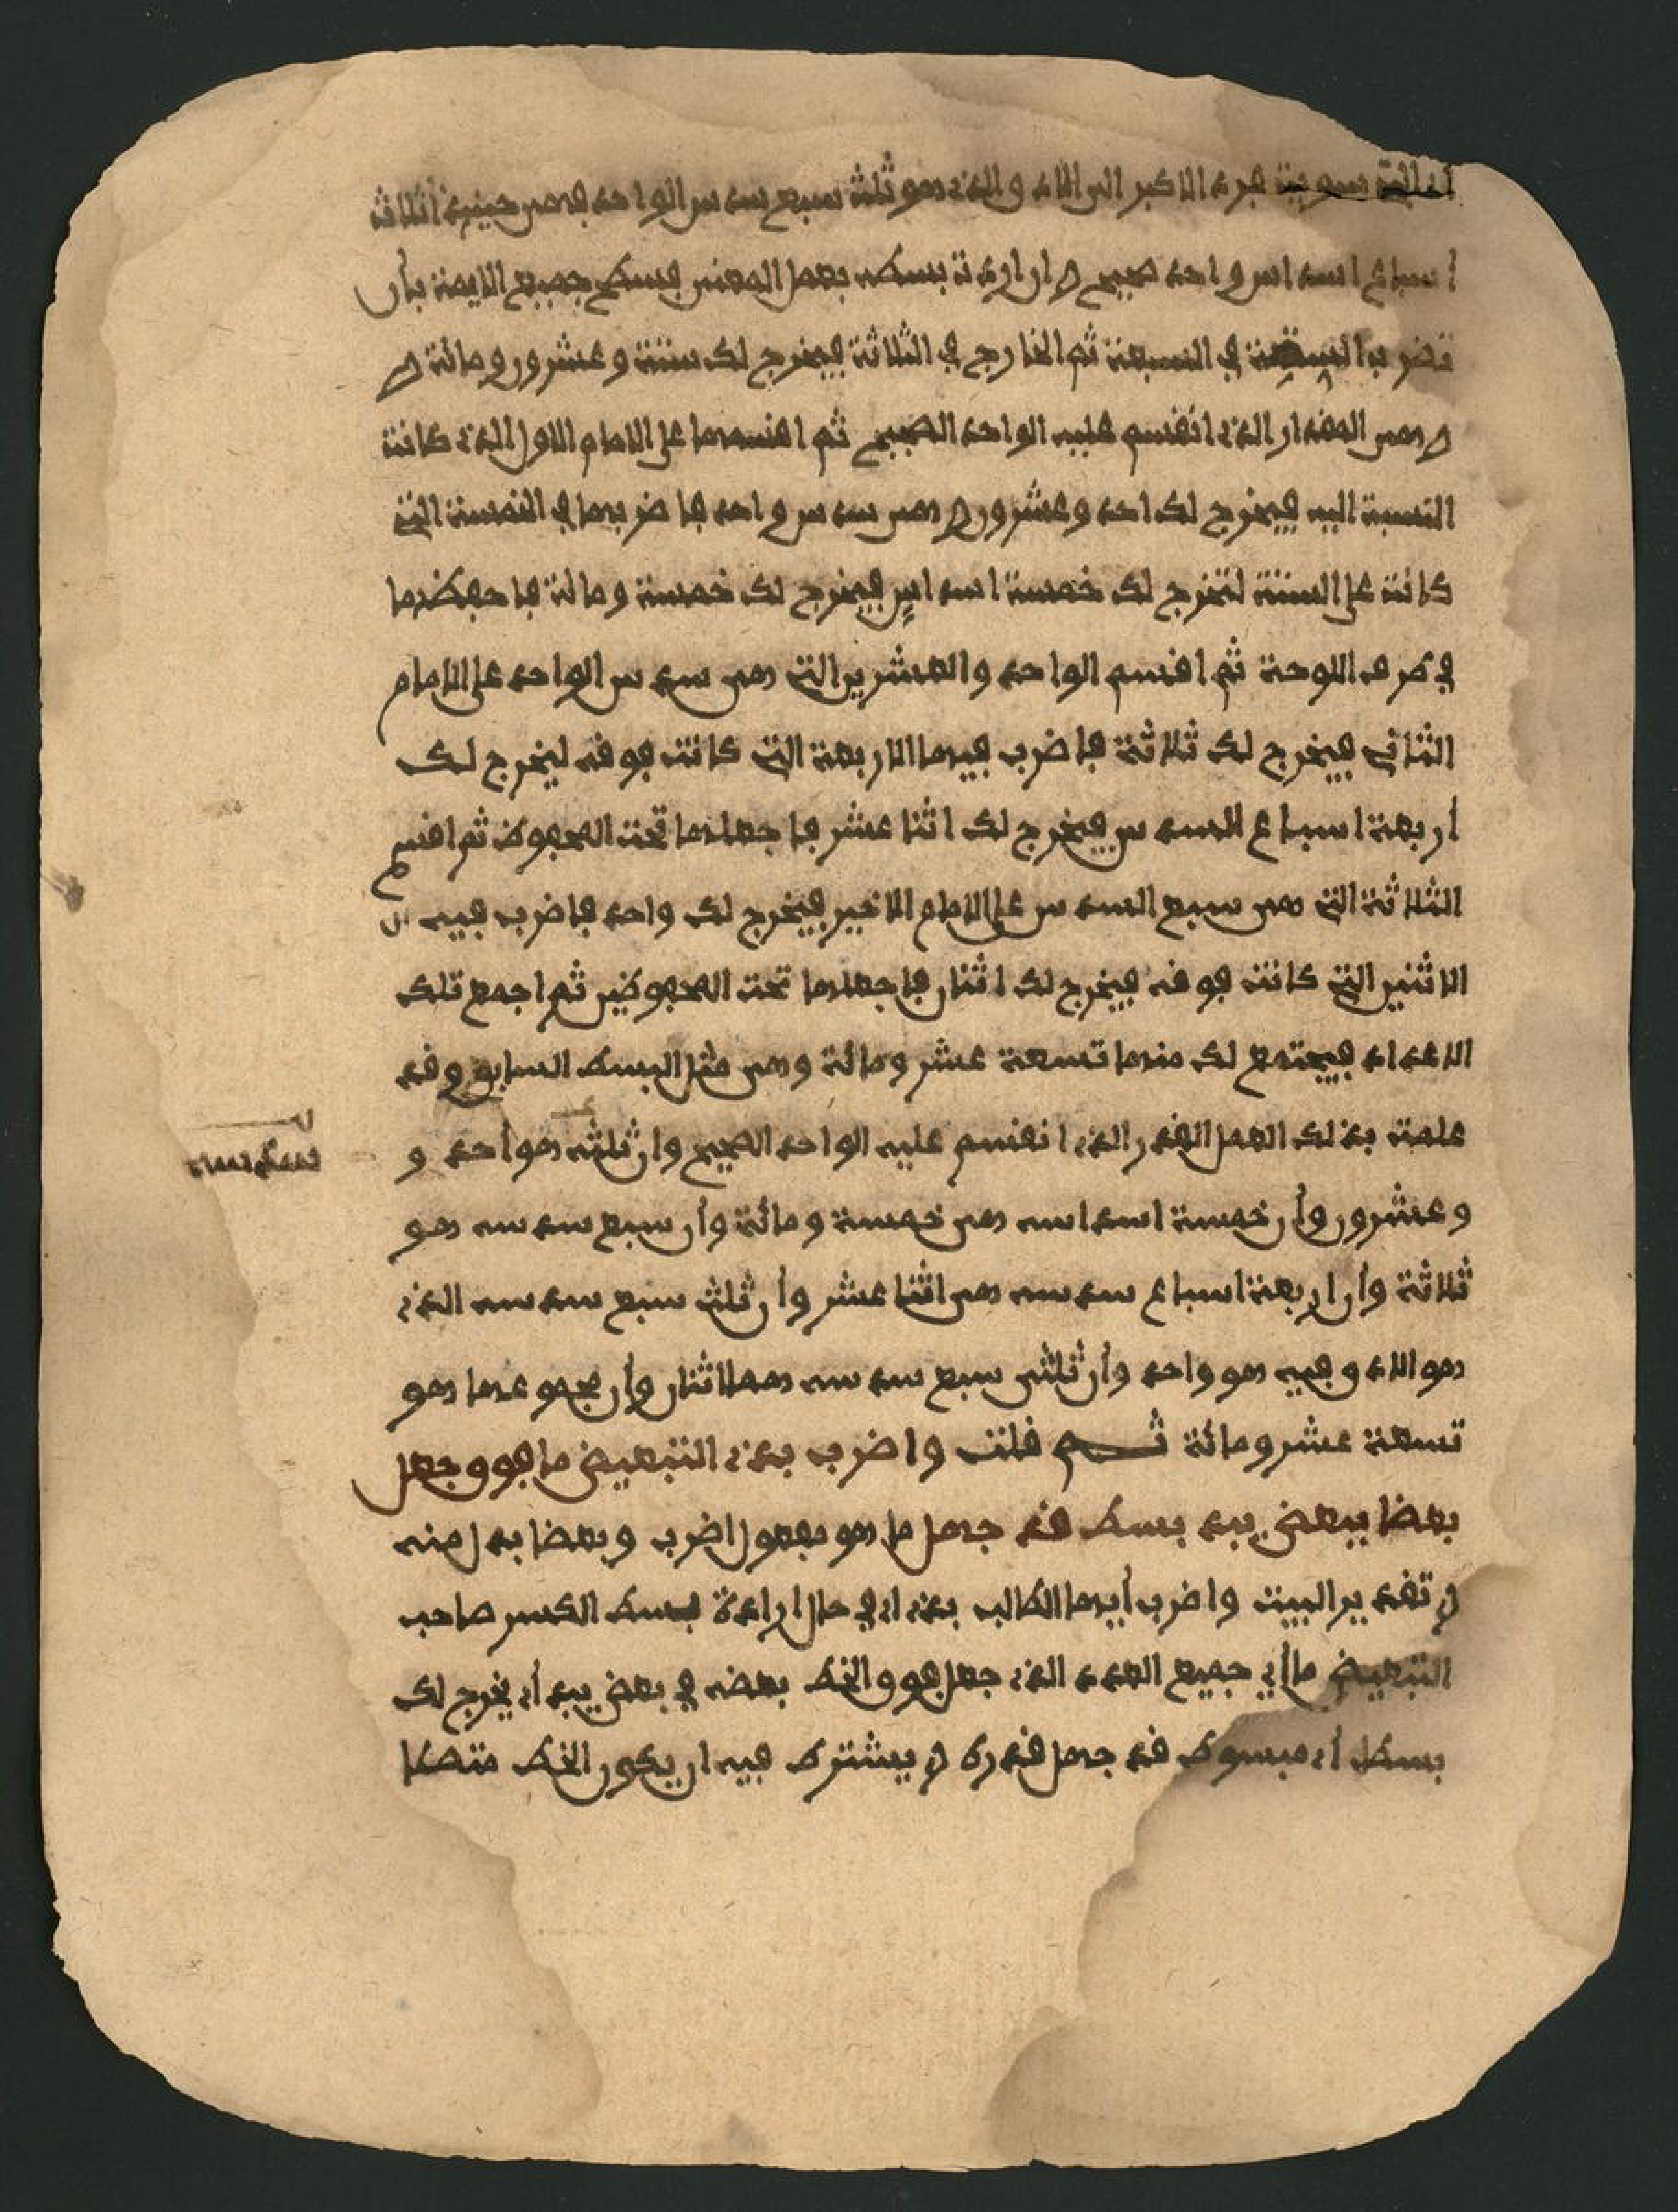 فرد الاكبر الى الاد والذي هو ثلث سبع سدس الواحد فهى حينئذ اثلاث
اسباع اسداس واحد صحيح وان اردت بسطه بعمل المعنى فسطح جميع الايمة بأن
تضرب الستة في السبعة ثم الخارج في الثلاثة فيخرج لك ستة وعشرون ومائة و
وهى المقدار الذي انقسم عليه الواحد الصحيح ثم اقسمها على الامام الاول الذي كانت
النسبة اليه فيخرج لك احد وعشرون وهى سدس واحد فاضربها في الخمسة التي
كانت على الستة لتخرج لك خمسة اسداس فيخرج لك خمسة ومائة فاحفظها
في طرف اللوحة ثم اقسم الواحد والعشرين التي هى سدس الواحد على الامام
الثاني فيخرج لك ثلاثة فاضرب فيها الاربعة التي كانت فوقه ليخرج لك
أربعة اسباع السدس فيخرج لك اثنا عشر فاجعلها تحت المحفوظ ثم اقسم
الثلاثة التي هى سبع السدس على الامام الاخير فيخرج لك واحد فاضرب فيه ال
الاثنين التي كانت فوقه فيخرج لك اثنان فاجعلها تحت المحفوظين ثم اجمع تلك
الاعداد فيجتمع لك منها تسعة عشر ومائة وهى مثل البسط السابق وقد
علمت بذلك العمل القدر الذي انقسم عليه الواحد الصحيح وان ثلثه هو أحد و
وعشرون وأن خمسة اسداسه هى خمسة ومائة وأن سبع سدسه هو
ثلاثة وأن اربعة اسباع سدسه هى اثنا عشر وأن ثلث سبع سدسه الذي
هو الاد وفيه هو واحد وأن ثلثى سبع سدسه هما اثنان وأن مجموعها هو
تسعة عشر ومائة ثم قلت واضرب بذي التبعيض ما فوق وجعل
بعضا ببعض يبد بسط قد جهل ما هو مفعول اضرب وبعضا بدل منه
وتقدير البيت واضرب أيها الطالب بذي اي في حال ارادة بسط الكسر صاحب
التبعيض ما اي جميع العدد الذي جعل فوق الخط بعضه في بعض يبد أي يخرج لك
بسط أي مبسوط قد جهل قدره ويشترط فيه ان يكون الخط متصلا